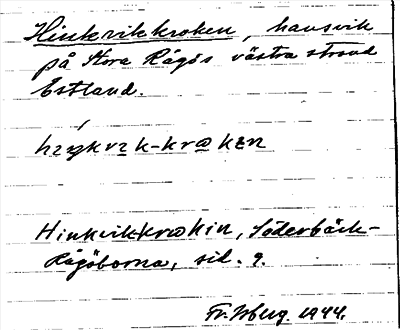 Hinkvikkroken, havsvik
på Stora Rågös västra strand
Estland.
hıŋkvık-krɷkɛn
Hinkvikkrokin, Söderbäck-
Rågöborna, sid. 9.
Fr. Wbg. 1944.